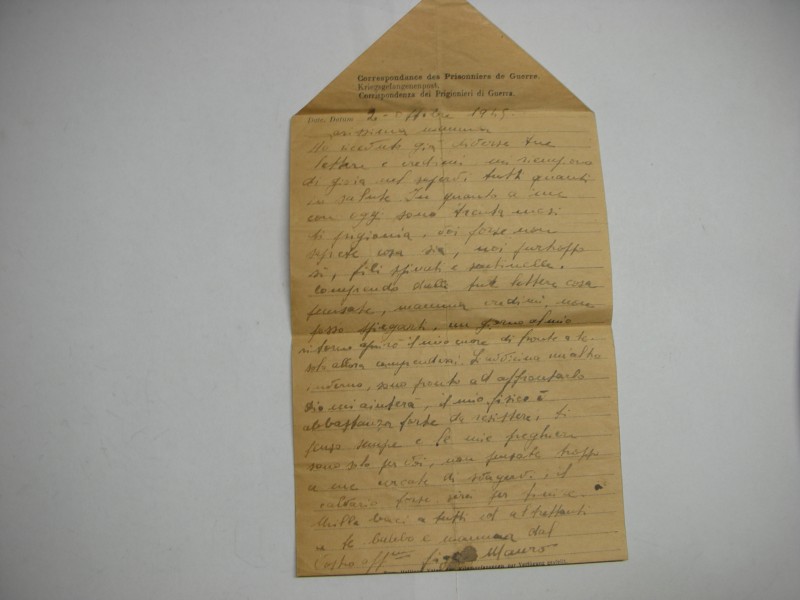 Correspondance des Prisonniers de Guerre.
Kriegsgefangenenpost.
Corrispondenza dei Prigionieri di Guerra.
Date, Datum 2 - ottobre 1945.
mamma
Ho ricevuto già diverse tue
lettere e credimi, mi riempiono
di gioia nel saperti tutti quanti
in salute. In quanto a me
con oggi sono trenta mesi
di prigionia, voi forse non
sapete cosa sia, noi purtroppo
sì, fili spinati e sentinelle.
Comprendo dalle tue lettere cosa
pensate, mamma credimi, non
posso spiegarti, un giorno al mio
ritorno aprirò il mio cuore di fronte a te
solo allora comprenderai. Si avvicina un'altro
inverno, sono pronto ad affrontarlo
Dio mi aiuterà, il mio fisico è
abbastanza forte da resistere, vi
penso sempre e le mie preghiere
sono solo per voi, non pensate troppo
a me cercate di il
calvario forse sarà per finire.
Mille baci a tutti ed altrettanti
a te babbo e mamma dal
Vostro aff.mo figlio Mauro